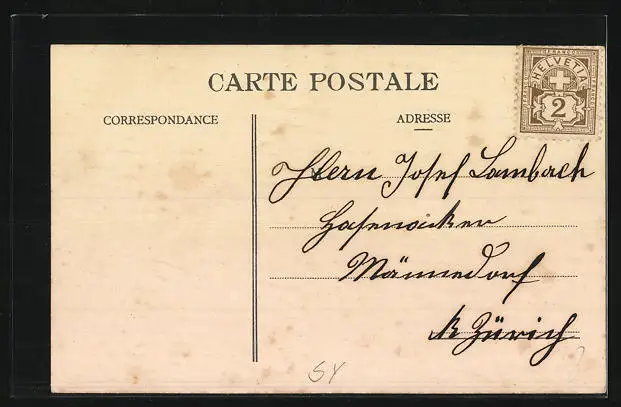 CARTE POSTALE
FRANCO
HELVETIA
2
CORRESPONDANCE
ADRESSE
Herrn Josef Lambach
Hasenacker
Männedorf
K Zürich
SY